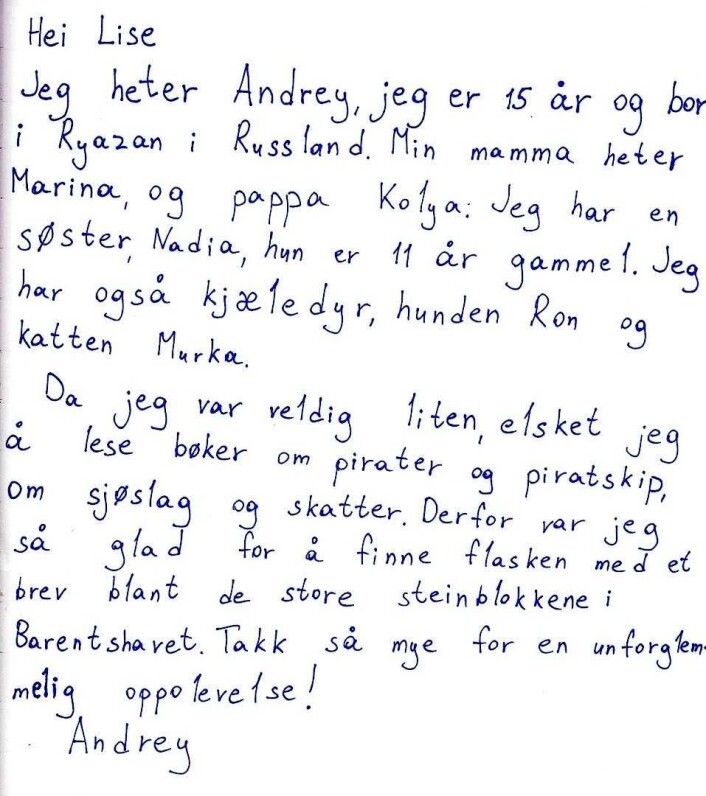 Hei Lise
Jeg heter Andrey, jeg er 15 år og bor
i Ryazan i Russland. Min mamma heter
Marina, og pappa Kolya. Jeg har en
søster, Nadia, hun er 11 år gammel. Jeg
har også kjæledyr, hunden Ron og
katten Murka.
Da jeg var veldig liten, elsket jeg
å lese bøker om pirater og piratskip,
om sjøslag og skatter. Derfor var jeg
så glad for å finne flasken med et
brev blant de store steinblokkene i
Barentshavet. Takk så mye for en unforglem-
melig oppolevelse!
Andrey